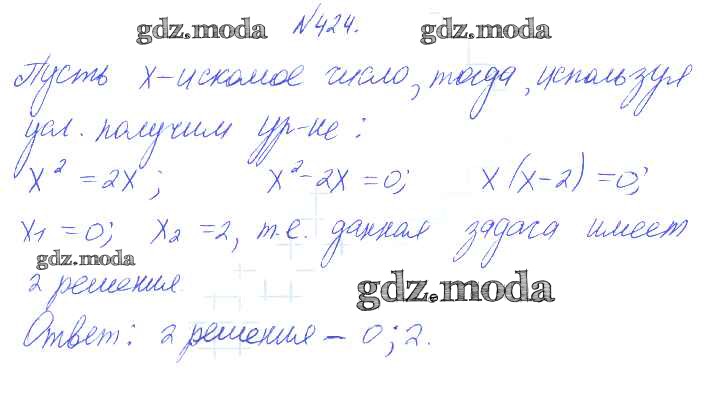 №424.
gdz.moda gdz.moda
Пусть x-искомое число, тогда, используя
усл. получим ур-не:
x² = 2x; x²-2x=0; x(x-2)=0;
x₁=0; x₂=2, т.е. данная задача имеет
gdz.moda
2 решения.
gdz.moda
Ответ: 2 решения – 0; 2.